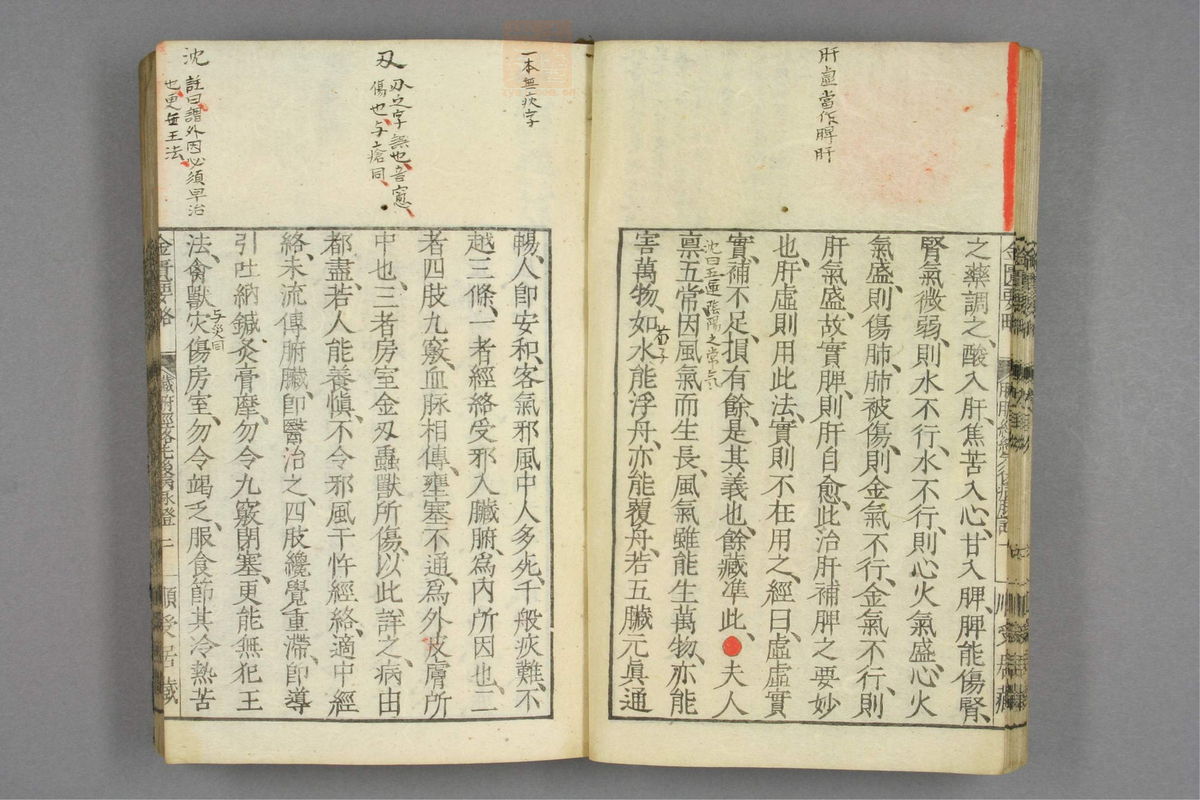 肝虛當作脾肝
之藥調之、酸入肝、焦苦入心、甘入脾、脾能傷腎、
腎氣微弱、則水不行、水不行、則心火氣盛、心火
氣盛、則傷肺、肺被傷、則金氣不行、金氣不行、則
肝氣盛、故實脾、則肝自愈、此治肝補脾之要妙
也、肝虛則用此法、實則不在用之、經曰虛虛實
實、補不足、損有餘、是其義也、餘藏準此、●夫人
沈曰五運陰陽之常氣
禀五常、因風氣而生長、風氣雖能生萬物、亦能
荀子
害萬物、如水能浮舟、亦能覆舟、若五臟元眞通
一本無疢字
暢、人卽安和、客氣邪風、中人多死、千般疢難、不
越三條、一者經絡受邪、入臟腑、爲內所因也、二
者四肢九竅、血脉相傳、壅塞不通、爲外皮膚所
刄 刄之字無也、音
傷也、与瘡同、
中也、三者房室金刄蟲獸所傷、以此詳之、病由
都盡、若人能養愼、不令邪風干忤經絡、適中經
絡、未流傳腑臟、卽醫治之、四肢纔覺重滯、卽導
引吐納、鍼灸膏摩、勿令九竅閉塞、更能無犯王
沈 註曰謂外因必須早治
也更無王法、
与災同
法、禽獸灾傷、房室、勿令竭乏、服食節其冷熱苦
金匱要略 臟腑經絡先後病脉證 二 順受居藏